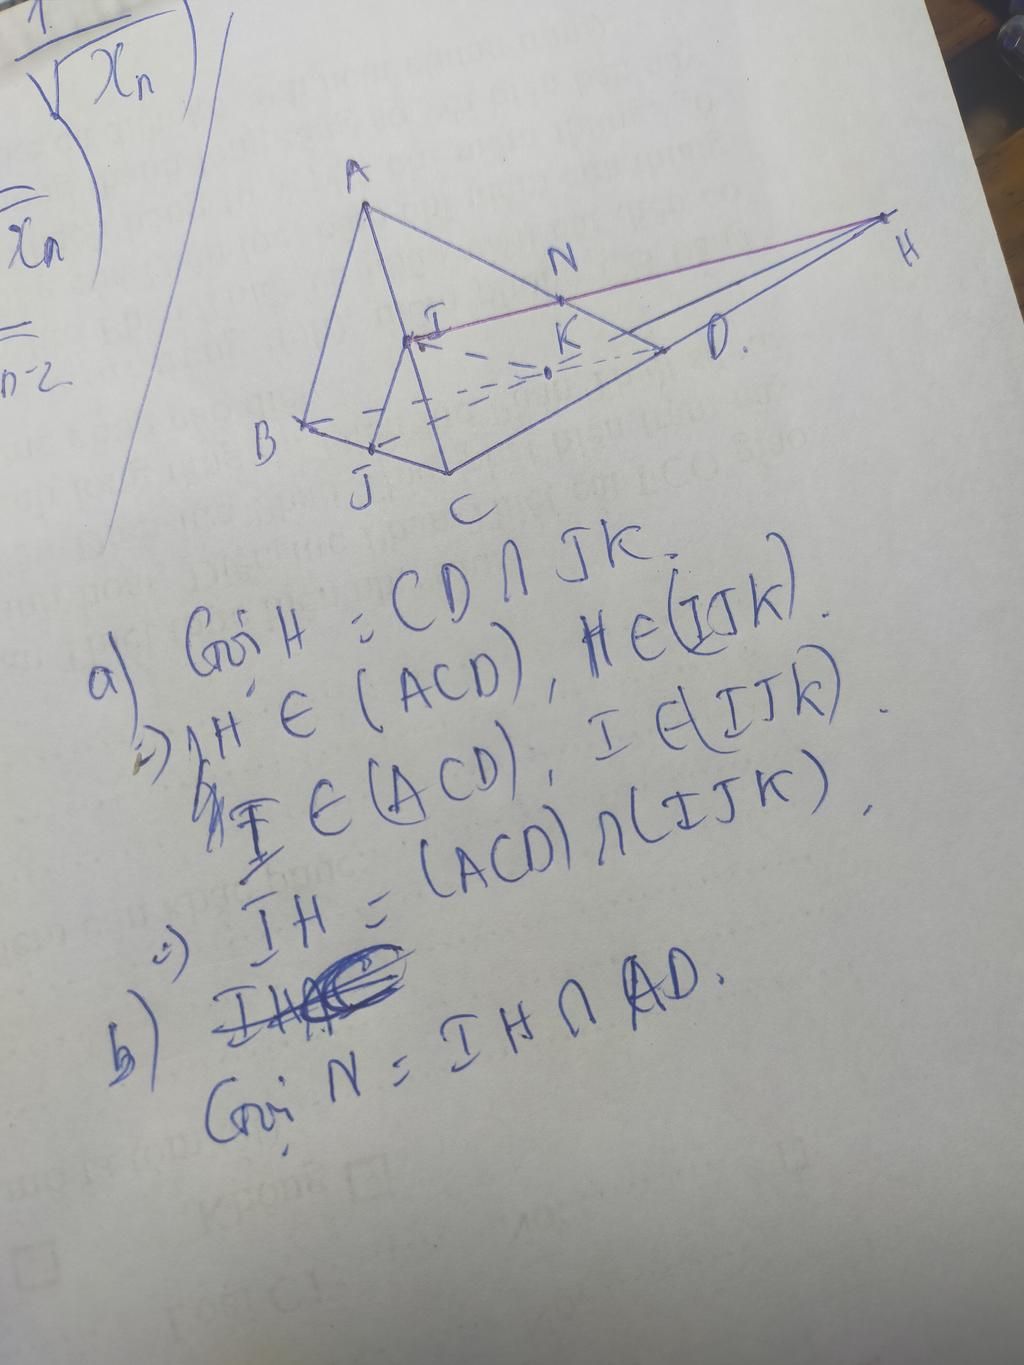 1
√xₙ
xₙ
n-2
A
N
H
I
K
D.
B
J
C
a) Gọi H = CD ∩ JK.
=) H ∈ (ACD), H ∈ (IJK).
I ∈ (ACD), I ∈ (IJK).
=) IH = (ACD) ∩ (IJK),
b)
Gọi N = IH ∩ AD.
Không